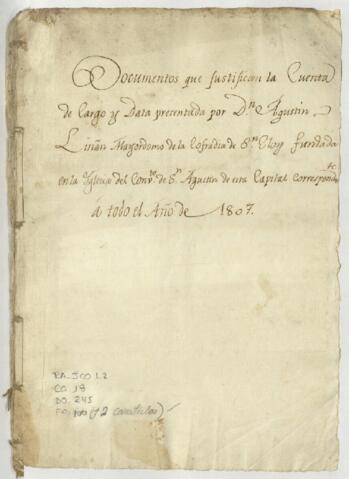 Documentos que justifican la Cuenta
de Cargo y Data precentada por Dn. Agustin
Liñan Mayordomo de la Cofradia de Sn. Eloy fundada
en la Iglesia del Convto. de Sn. Agustin de esta Capital correspondte.
a todo el Año de 1807.
RA_JOO 1.2
CO. 18
DO. 245
FO. 100 (+2 caratulas)